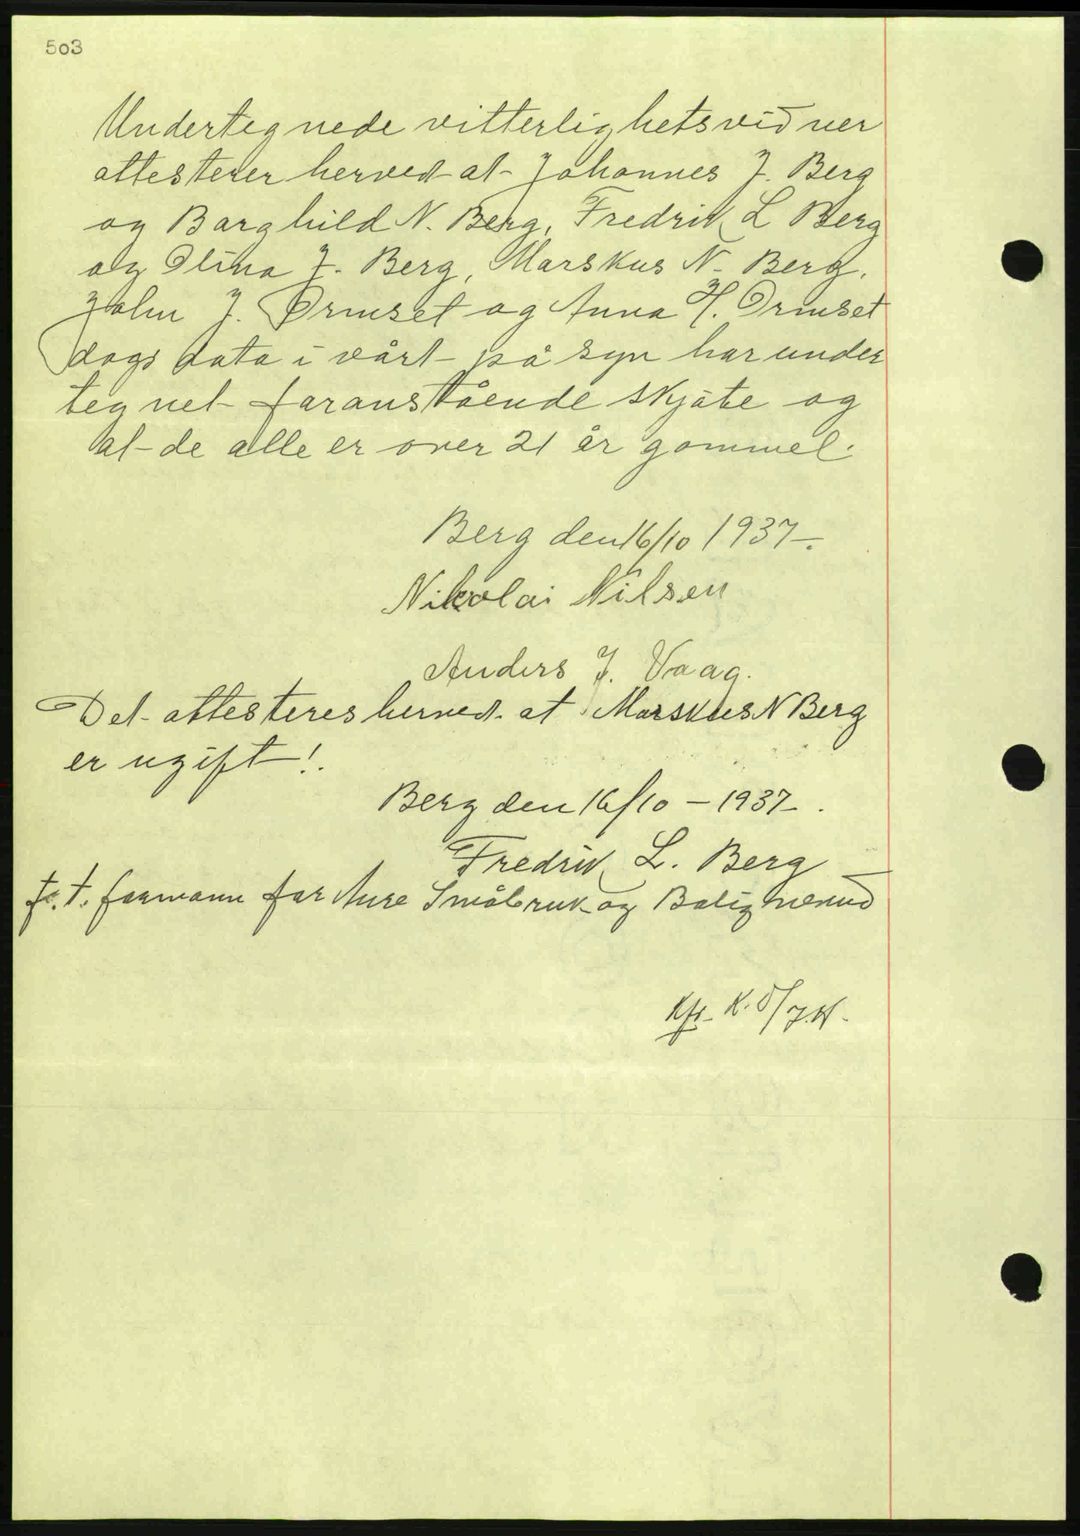 503
Undertegnede vitterlighetsvidner
attesterer herved at Johannes J. Berg
og Borghild N. Berg, Fredrik L Berg
og Olina J. Berg, Marskus N. Berg,
John J. Ormset og Anna H. Ormset
dags dato i vårt på syn har under
tegnet foranstående skjøte og
at de alle er over 21 år gammel.
Berg den 16/10 1937.
Nikolai Nilsen
Anders J. Vaag.
Det attesteres herved at Marskus N Berg
er ugift!.
Berg den 16/10 - 1937.
Fredrik L. Berg
f.t. formann for Aure Småbruk og Bolignemnd
Kfr. K.S/J.H.